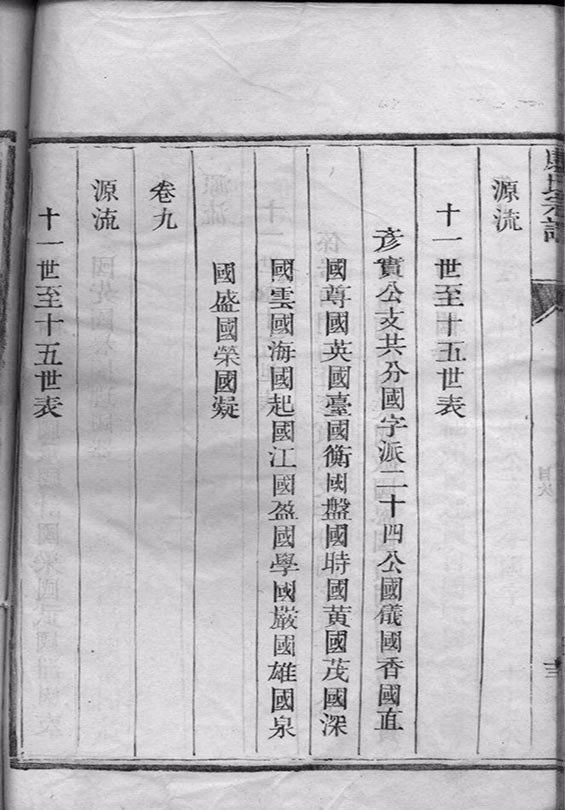 源流
十一世至十五世表
彥實公支共分國字派二十四公國儀國香國直
國尊國英國臺國衡國盤國時國黃國茂國深
國雲國海國起國江國盈國學國嚴國雄國泉
國盛國榮國凝
卷九
源流
十一世至十五世表
目次